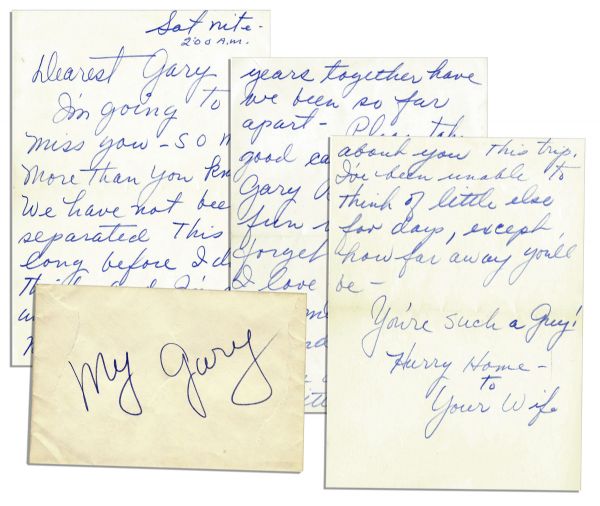 Sat nite-
2:00 A.M.
Dearest Gary
I'm going to
miss you - so
more than you
We have not
separated This
long before I
years together have
we been so far
apart -
good
Gary
fun
forget
I love
about you this trip.
I've been unable to
think of little else
for days, except,
how far away you'll
be -
You're such a Guy!
Hurry Home -
to
Your Wife
My Gary